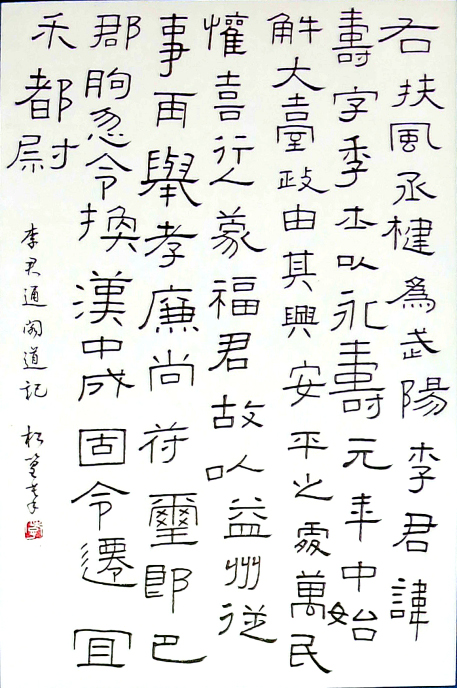 右扶風丞楗爲武陽李君諱
壽字季士以永壽元年中始
解大臺政由其興安平之處萬民
懽喜行人蒙福君故以益州從
事再舉孝廉尚符璽郎巴
郡朐忍令換漢中成固令遷宜
禾都尉
李君通閣道記